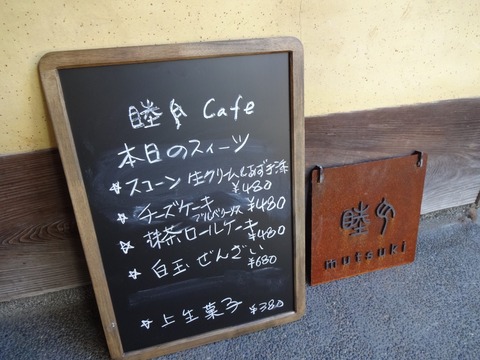 睦月 Cafe
本日のスイーツ
☆スコーン 生クリーム&あずき添
¥480
☆チーズケーキ
ブルーベリーソース ¥480
☆抹茶ロールケーキ
¥480
☆白玉ぜんざい
¥680
☆上生菓子 ¥380
睦月
mutsuki